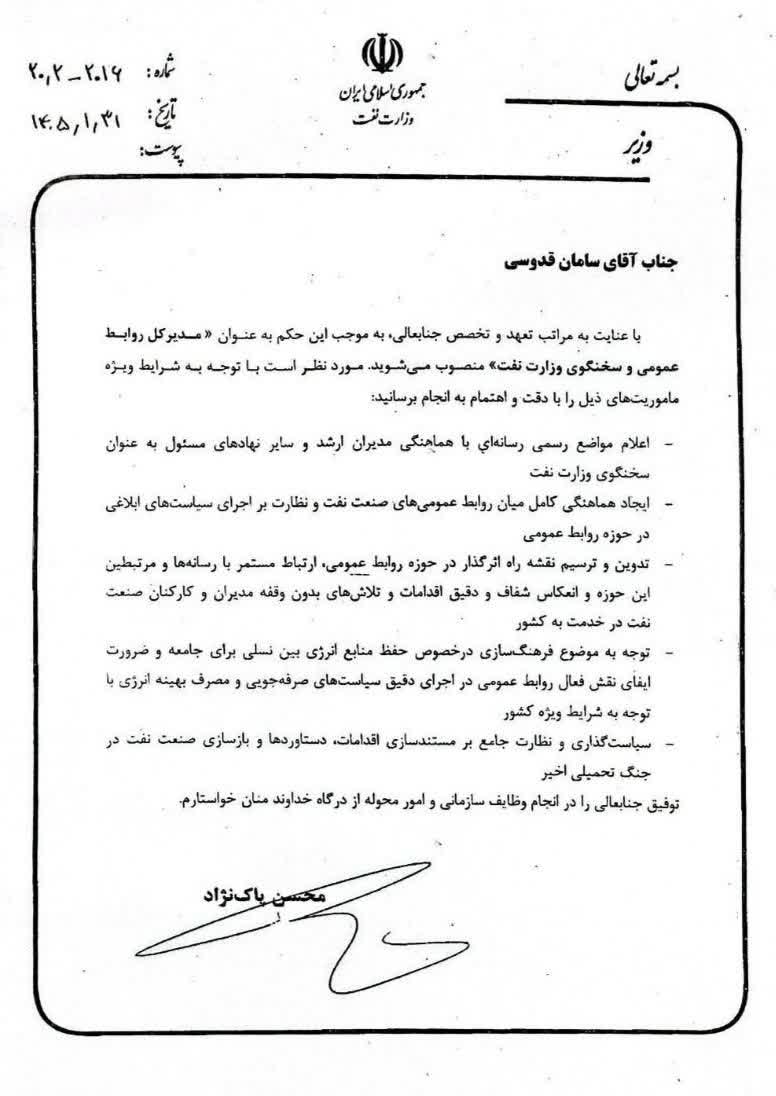 بسمه تعالی
جمهوری اسلامی ایران
وزارت نفت
وزیر
شماره: ۲۰۱۶–۲۰,۲
تاریخ: ۱۴۰۵,۱,۳۱
پیوست:
جناب آقای سامان قدوسی
با عنایت به مراتب تعهد و تخصص جنابعالی، به موجب این حکم به عنـوان « مـدیرکل روابـط
عمومی و سخنگوی وزارت نفت» منصوب می‌شوید. مـورد نظـر اسـت بـا توجـه بـه شـرایط ویـژه
ماموریت‌های ذیل را با دقت و اهتمام به انجام برسانید:
- اعلام مواضع رسمی رسانه‌ای با هماهنگی مدیران ارشد و سایر نهادهای مسئول به عنوان
سخنگوی وزارت نفت
- ایجاد هماهنگی کامل میان روابط عمومی‌های صنعت نفت و نظارت بر اجرای سیاست‌های ابلاغی
در حوزه روابط عمومی
- تدوین و ترسیم نقشه راه اثرگذار در حوزه روابط عمومی، ارتباط مستمر با رسانه‌ها و مرتبطین
این حوزه و انعکاس شفاف و دقیق اقدامات و تلاش‌های بدون وقفه مدیران و کارکنان صنعت
نفت در خدمت به کشور
- توجه به موضوع فرهنگ‌سازی درخصوص حفظ منابع انرژی بین نسلی برای جامعه و ضرورت
ایفای نقش فعال روابط عمومی در اجرای دقیق سیاست‌های صرفه‌جویی و مصرف بهینه انرژی با
توجه به شرایط ویژه کشور
- سیاست‌گذاری و نظارت جامع بر مستندسازی اقدامات، دستاوردها و بازسازی صنعت نفت در
جنگ تحمیلی اخیر
توفیق جنابعالی را در انجام وظایف سازمانی و امور محوله از درگاه خداوند منان خواستارم.
محسن پاک‌نژاد